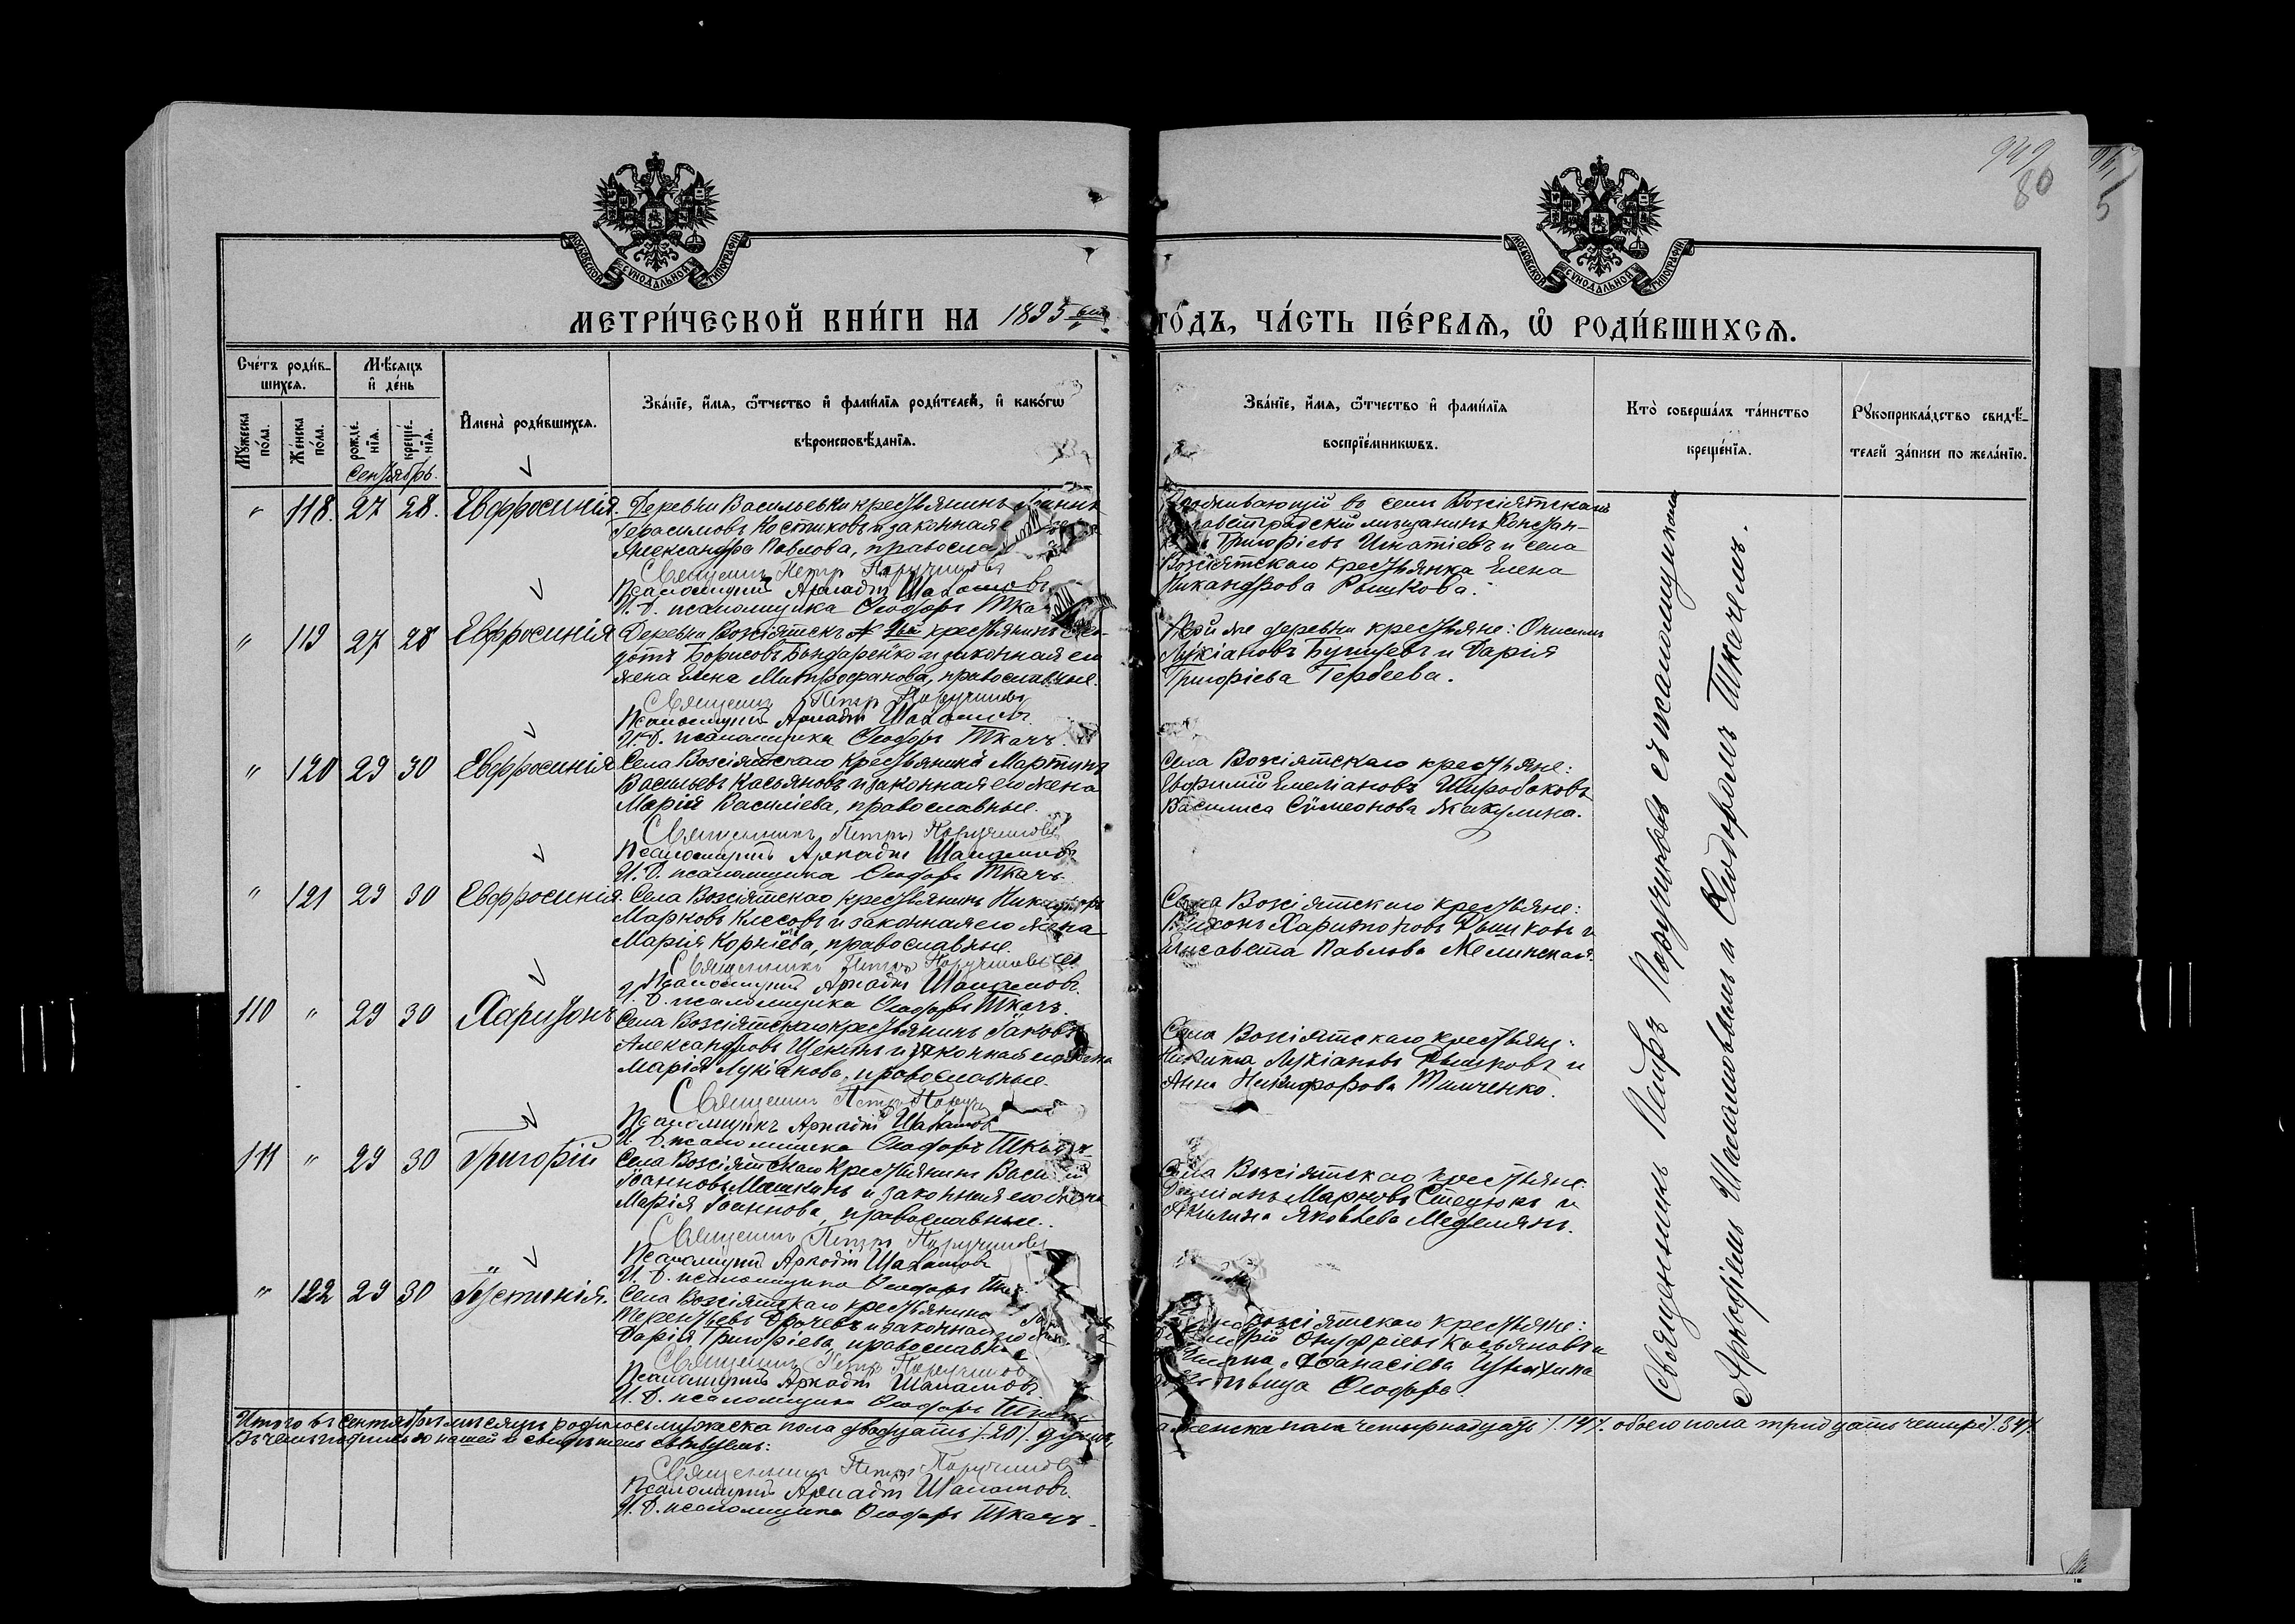 949
80
96
5
МОСКОВСКОЙ СѴНОДАЛЬНОЙ ТИПОГРАФІИ
МОСКОВСКОЙ СѴНОДАЛЬНОЙ ТИПОГРАФІИ
МЕТРИ́ЧЕСКОЙ КНИ́ГИ НА 1895
ГО́ДЪ, ЧА́СТЬ ПЕ́РВАЯ, Ѡ҆ РОДИ́ВШИХСЯ.
Сче́тъ роди́в-
шихся.
Мѣ́сяцъ
и҆ де́нь
Мꙋ́жеска
по́ла.
Же́нска
по́ла.
рожде́-
нїя.
креще́-
нїя.
И҆мена̀ роди́вшихся.
Зва́нїе, и҆́мя, ѻ҆́тчество и҆ фами́лїя роди́телей, и҆ како́гѡ
вѣроисповѣ́данїя.
Зва́нїе, и҆́мя, ѻ҆́тчество и҆ фами́лїя
воспрїе́мникѡвъ.
Кто̀ соверша́лъ та́инство
креще́нїя.
Рꙋкоприкла́дство свидѣ́-
телей за́писи по жела́нїю.
Сентябрь.
" 118. 27 28. Евфросинія. Деревни Васильевки крестьянинъ Іоаннъ
Герасимовъ Костиковъ и законная
Александра Павлова, правосла
Священникъ Петръ Поручиковъ
Псаломщикъ Аркадій Шаламовъ
И. Д. псаломщика Ѳеодоръ Тка
Проживающій въ селѣ Возсіятскомъ
мѣщанинъ Констан-
Григоріевъ Игнатіевъ и села
Возсіятскаго крестьянка Елена
Никандрова Рышкова.
" 119 27 28 Евфросинія Деревни Возсіятскъ № 2й крестьянинъ
Борисовъ Бондаренко и законная его
жена Елена Митрофанова, православные.
Священникъ Петръ Поручиковъ
Псаломщикъ Аркадій Шаламовъ
И. Д. псаломщика Ѳеодоръ Ткачъ.
Той же деревни крестьяне: Онисимъ
Лукіановъ и Дарія
Григоріева Гербеева.
" 120 29 30 Евфросинія Села Возсіятскаго крестьянинъ Мартинъ
Васильевъ Касьяновъ и законная его жена
Марія Василіева, православные.
Священникъ Петръ Поручиковъ
Псаломщикъ Аркадій Шаламовъ
И. Д. псаломщика Ѳеодоръ Ткачъ.
Села Возсіятскаго крестьяне:
Евфимій Емеліановъ Широбоковъ
Василиса Сѵмеонова Жакулина.
" 121 29 30 Евфросинія. Села Возсіятскаго крестьянинъ Никифоръ
Марковъ Клесовъ и законная его жена
Марія Корніева, православные.
Священникъ Петръ Поручиковъ
Псаломщикъ Аркадій Шаламовъ.
И. Д. псаломщика Ѳеодоръ Ткачъ.
Села Возсіятскаго крестьяне:
Харитоновъ Рышковъ и
Елисавета Павлова Желинская.
110 " 29 30 Харитонъ Села Возсіятскаго крестьянинъ Іаковъ
Александровъ Щекинъ и законная его жена
Марія Лукіанова, православные.
Священникъ Петръ Поруч
Псаломщикъ Аркадій Шаламов
И. Д. псаломщика Ѳеодоръ Ткачъ.
Села Возсіятскаго крестьяне:
Никита Лукіановъ Рышковъ и
Анна Никифорова Тимченко.
111 " 29 30 Григорій Села Возсіятскаго крестьянинъ Васи
Іоанновъ Машкинъ и законная его жена
Марія Іоаннова, православные.
Священникъ Петръ Поручиковъ
Псаломщикъ Аркадій Шаламовъ
И. Д. псаломщика Ѳеодоръ Тк
Села Возсіятскаго крестьяне:
Даміанъ Марковъ Стецюкъ и
Акилина Яковлева
" 122 29 30 Іустинія. Села Возсіятскаго крестьянинъ
Терентьевъ и законная
Дарія Григоріева, православн
Священникъ Петръ Поручиков
Псаломщикъ Аркадій Шаламовъ
И. Д. псаломщика Ѳеодоръ Тк
Возсіятскаго крестьяне:
Онуфріевъ Касьяновъ и
Аѳанасіева
дѣвица Ѳеодора.
Священникъ Петръ Поручиковъ съ псаломщикомъ
Аркадіемъ Шаламовымъ и Ѳеодоромъ Ткачемъ.
Итого въ сентябрѣ мѣсяцѣ родилось мужеска пола двадцать /.20/. душъ,
а женска пола четырнадцать /.14/. обоего пола тридцать четыре /.34/.
Въ чемъ подписью нашей и свидѣтельствуемъ:
Священникъ Петръ Поручиковъ
Псаломщикъ Аркадій Шаламовъ.
И. Д. псаломщика Ѳеодоръ Ткачъ.